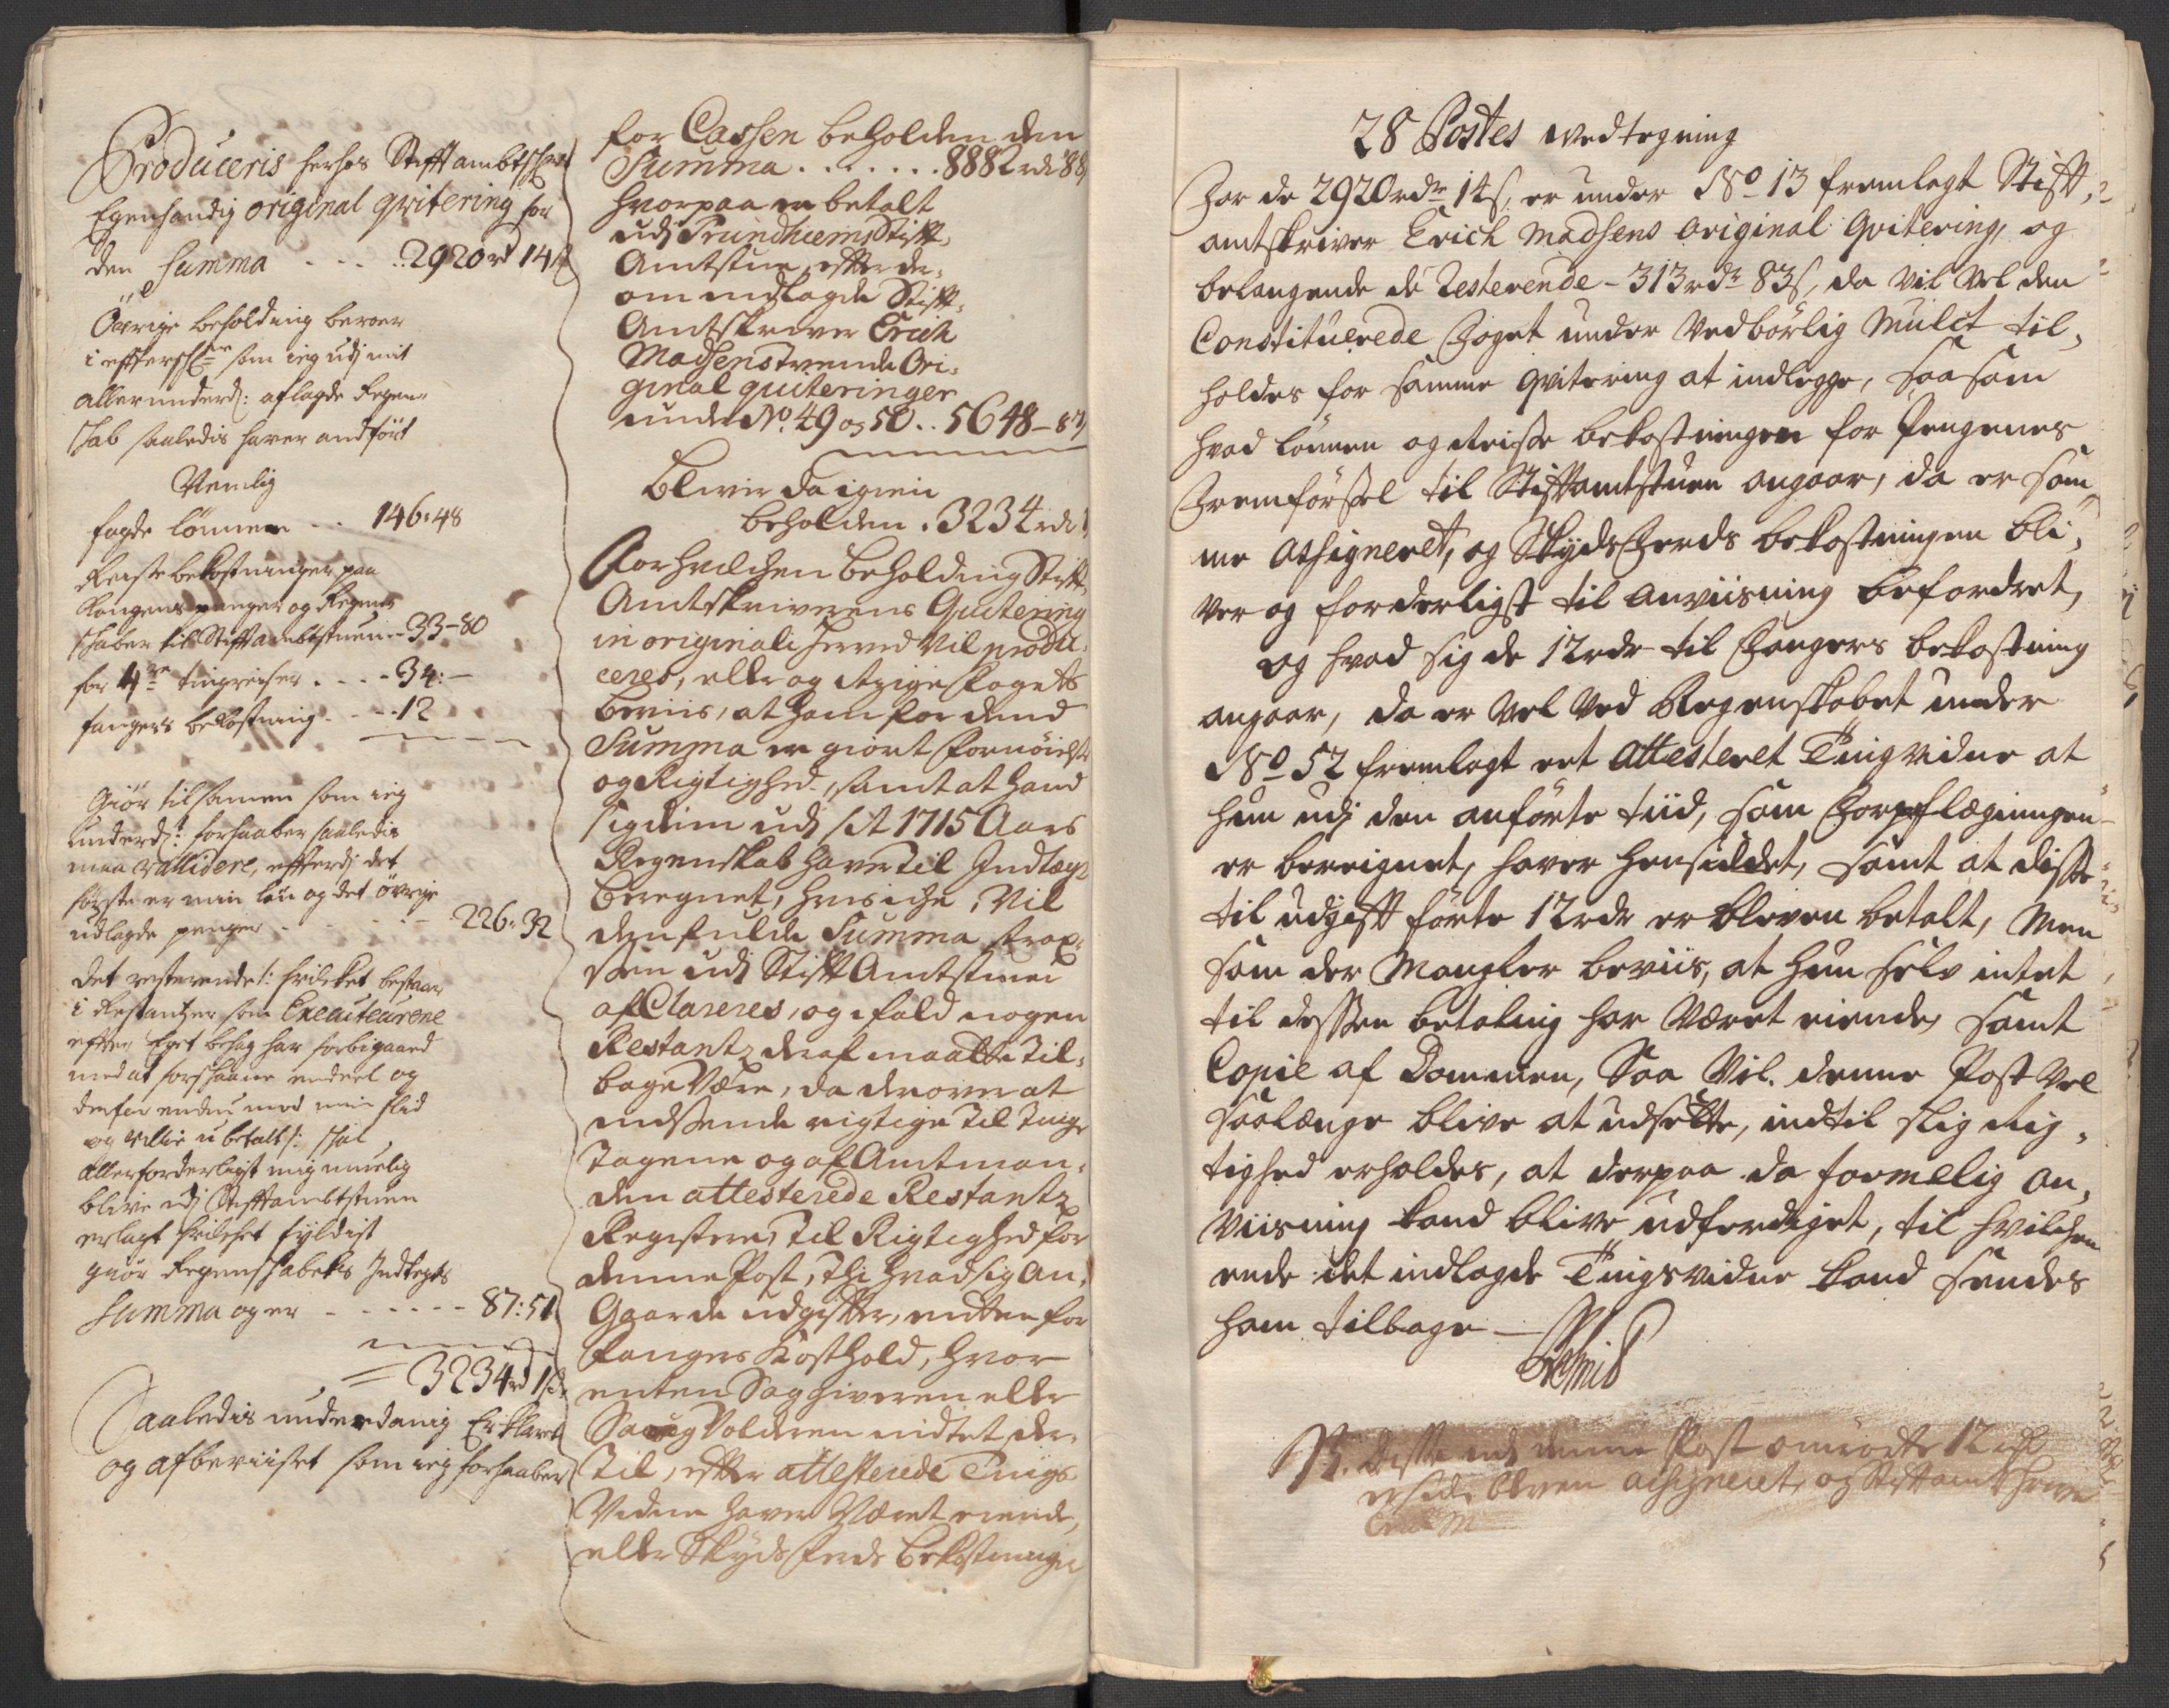 Produceris herhos Stiftambtschr:
Egenhændig original qvitering for
den Summa . . . . 2920rd 14s
Övrige beholding beroer
i effterschne som ieg udj mit
allerunderd: aflagde Regen-
schab saaledis haver andført
Nemlig
fogde lönnen . . . 146:48
Reiste bekostninger paa
Kongens penger og Regens
schaber til Stiftambtstuen - 33-80
for 4re tingreiser . . . - 34:-
fangers bekostning . . - 12
Giør tilsamen som ieg
underd: forhaaber saaledis
maa vallidere, effterdj det
første er min løn og det övrige
udlagde penger - - - - 226:32
det resterende /: hvilcket bestaar
i Restantzer som Executeurene
efter Eget behag har forbigaaed
med at forschaane endeel og
derfor endnu mod min flid
og villie ubetalt :/ schal
allerforderligst mig muelig
blive udj Stiftambtstuen
erlagt hvilchet fyldist
giør Regenschabets Indtegts
Summa og er - - - - - - 87:51
= 3234rd 1s
Saaledis underdanig Erklæret
og afbeviiset som ieg forhaaber
for Cassen beholden den
Summa . . . . . . 8882rd 88
hvorpaa er betalt
udj Trundhiems Stift-
Amtstue, efter de-
om indlagde Stift-
Amtskriver Erich
Madsens tvende Ori-
ginal quiteringer
under No. 49 og 50 . . 5648-87
Bliver da igien
beholden . 3234rd 1
For hvilchen beholding Stift-
Amtskriverens Quitering
in originali herved vil produ-
ceres, eller og Afgigne fogets
beviis, at ham for dend
Summa er giort fornøielse
og Rigtighed, samt at hand
sig dem udj sit 1715 Aars
Regenskab haver til Indtægt
beregnet, hvis iche, vil
den fulde Summa strax-
sen udj Stift Amtstuen
af Clareres, og i fald nogen
Restantz deraf maatte til-
bage være, da derover at
indsende rigtige til Tinge
tagene og af Amtman-
den attesterede Restantz
Registere, til Rigtighed for
denne Post, Thi hvad sig an-
gaar de udgifter, enten for
fangers Kosthold, hvor
enten Saghiveren eller
Saugvolderen indtet der-
til, efter attesterede Tings
vidne haver været eiende,
eller Skyds ferds bekostninger
28 Postes vedtegning
For de 2920rdr 14s, er under No 13 fremlagt Stift-
amtskriver Erich Madsens original Qvitering, og
belangende de Resterende - 313rdr 83s, da vil vel den
Constituerede foget under vedbörlig Mulct til-
holdes for samme qvitering at indlegge, saasom
hvad lönnen og Reisse bekostningen for Pengenes
Fremförssel til Stiftamtstuen angaar, da er sam-
me assigneret, og Skydsferds bekostningen bli-
ver og forderligst til anviisning befordret,
og hvad sig de 12rdr til Fangers bekostning
angaar, da er vel ved Regenskabet under
No 52 fremlagt eet attesteret Tingvidne at
hun udj den anförte tiid, som Forpflægningen
er bereignet, haver hensiddet, samt at disse
til udgift förte 12rdr er bleven betalt, Men
som der Mangler beviis, at hun selv intet
til dessen betaling har været eiende, samt
Copie af Dommen, Saa vil denne Post vel
saalænge blive at udsette, indtil slig Rig-
tighed erholdes, at derpaa da formelig An-
viisning kand blive udferdiget, til hvilchen
ende det indlagde Tingsvidne kand sendes
ham tilbage -
NB. Disse udj denne Post omrørte 12rdr
er siden bleven assigneret, og Stiftamtschriver
Erich M